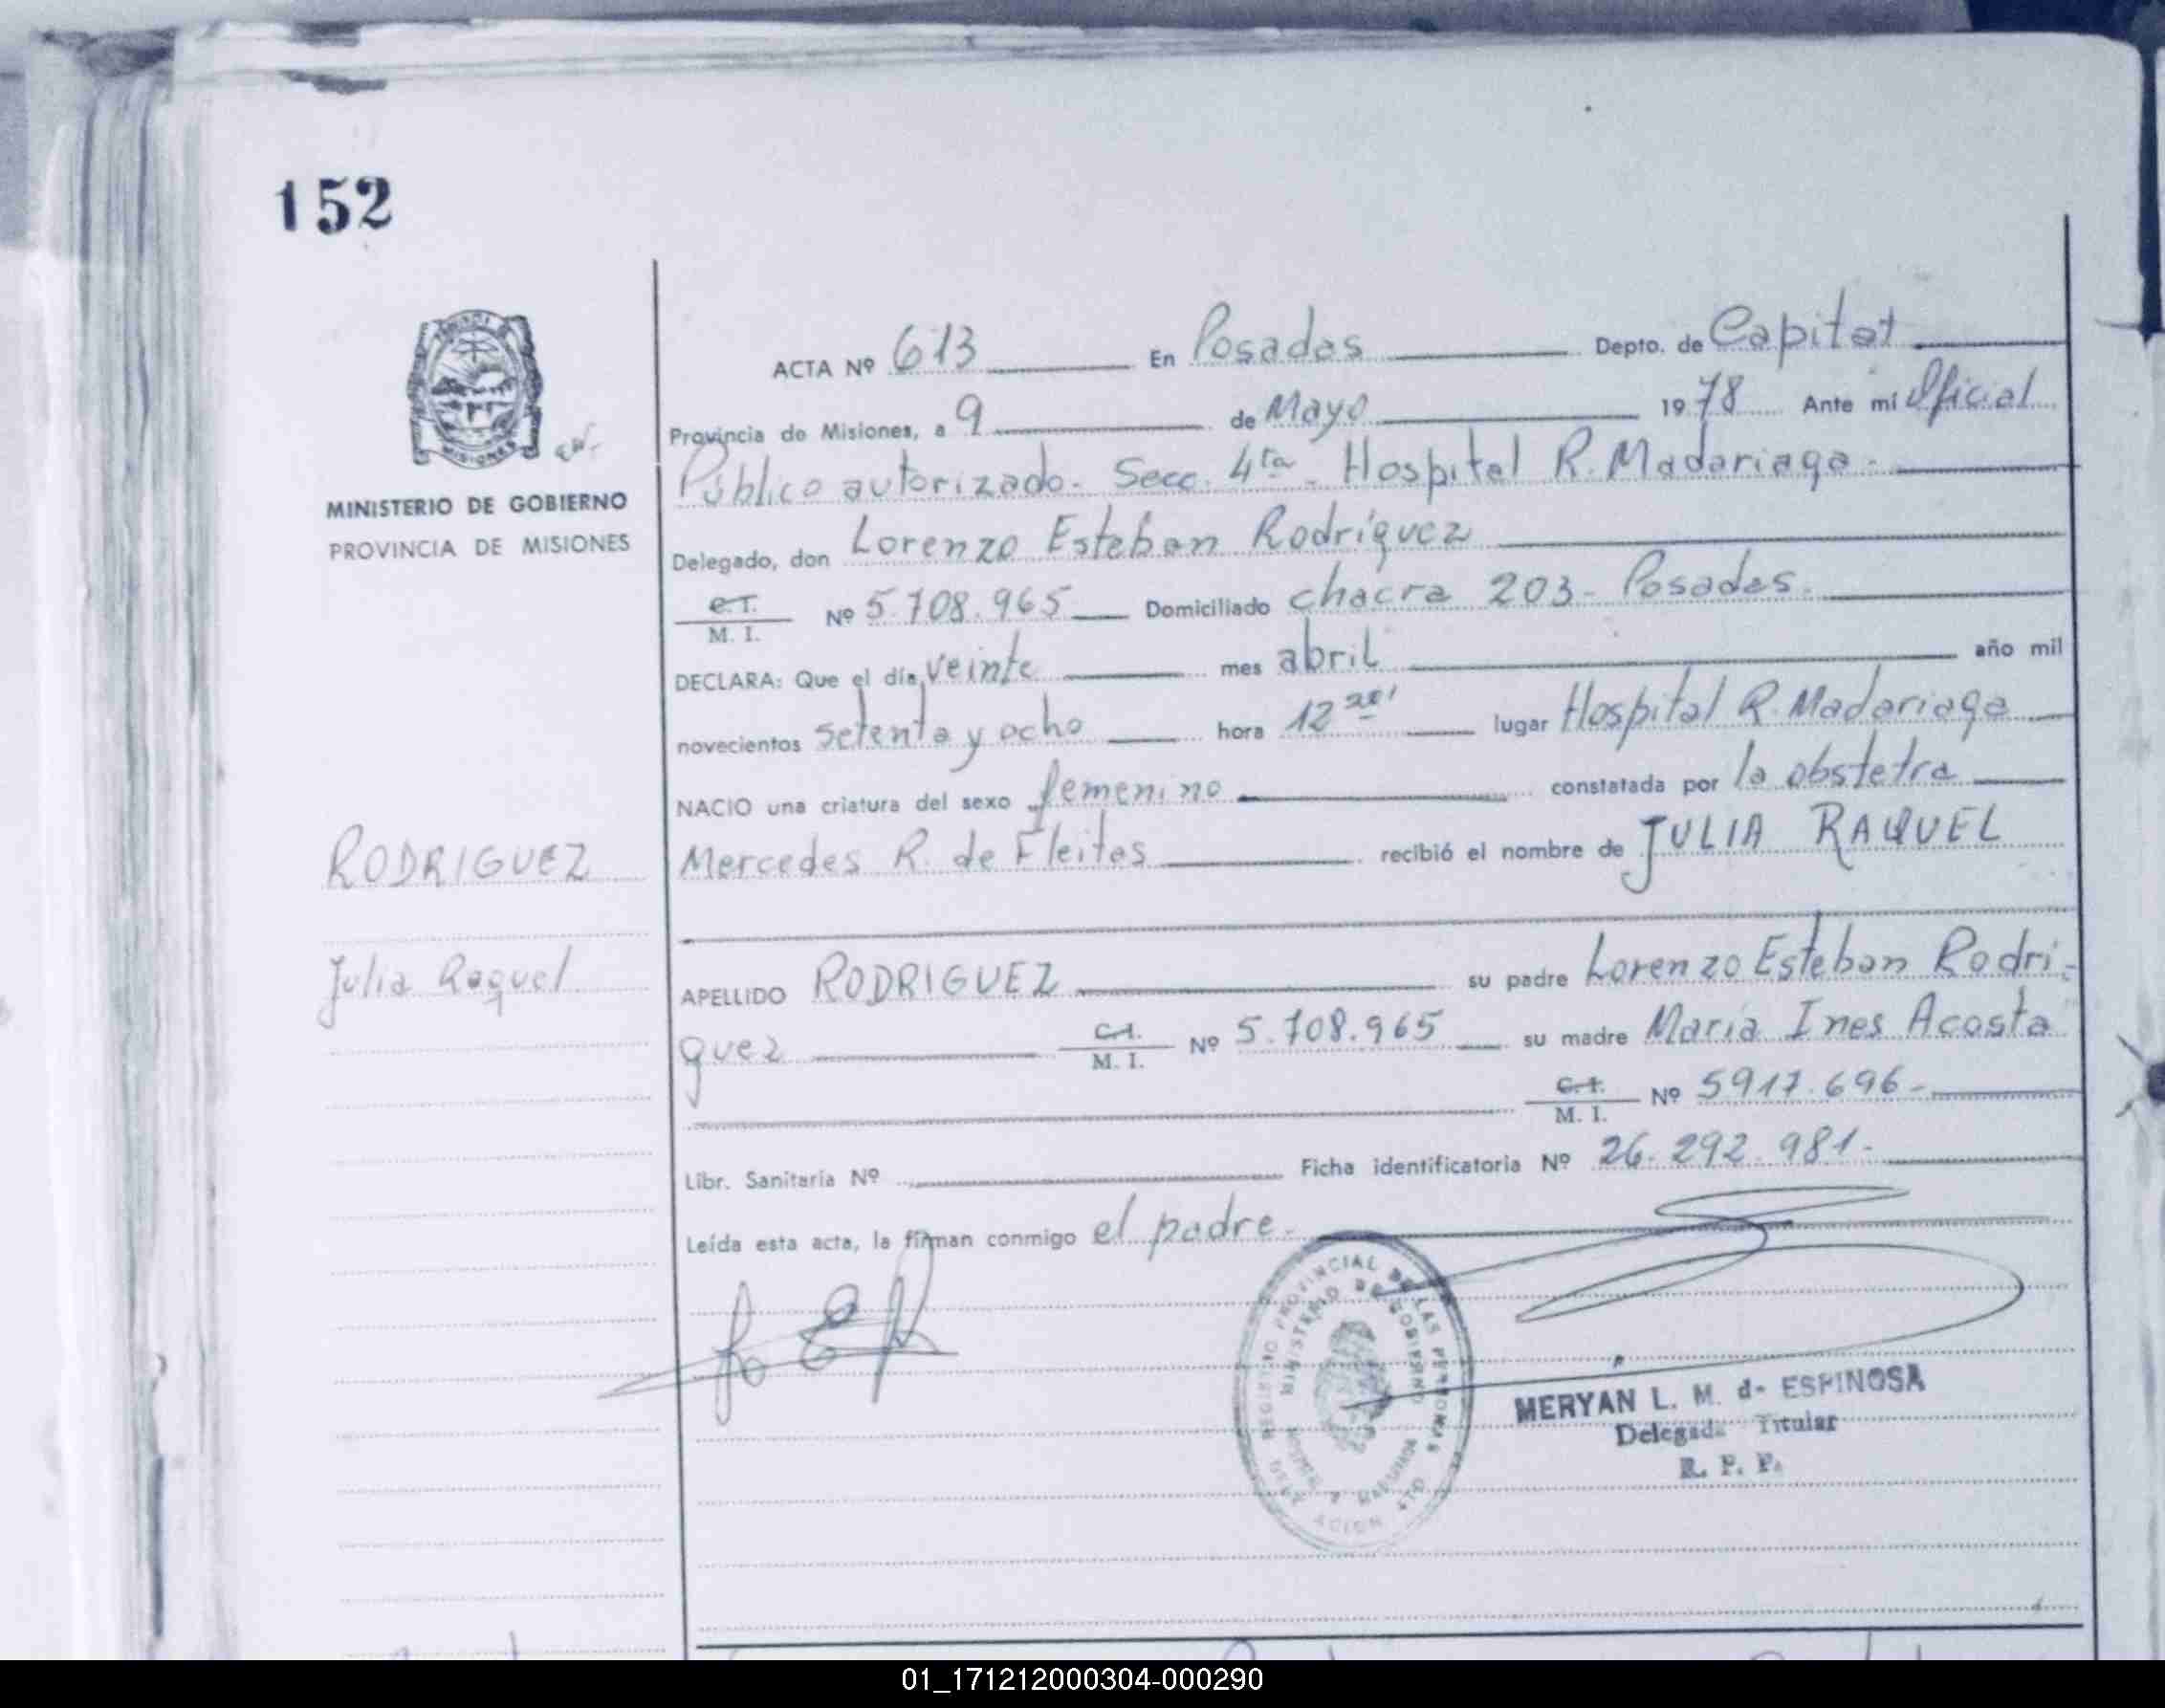 152
MINISTERIO DE GOBIERNO
PROVINCIA DE MISIONES
RODRIGUEZ
Julia Raquel
ACTA Nº 613 En Posadas Depto. de Capital
Provincia de Misiones, a 9 de Mayo 1978 Ante mí Oficial
Público autorizado. Secc. 4ta - Hospital R. Madariaga.-
Delegado, don Lorenzo Esteban Rodríguez
C.I. M. I. Nº 5.708.965 Domiciliado chacra 203 - Posadas.
DECLARA: Que el día veinte mes abril año mil
novecientos setenta y ocho hora 12 lugar Hospital R. Madariaga
NACIO una criatura del sexo femenino constatada por la obstetra
Mercedes R. de Fleitas recibió el nombre de JULIA RAQUEL
APELLIDO RODRIGUEZ su padre Lorenzo Esteban Rodrí-
guez C.I. M. I. Nº 5.708.965 su madre María Ines Acosta
C.I. M. I. Nº 5917.696-
Libr. Sanitaria Nº Ficha identificatoria Nº 26.292.981.-
Leída esta acta, la firman conmigo el padre.-
REGISTRO PROVINCIAL DE LAS PERSONAS
MINISTERIO DE GOBIERNO
MERYAN L. M. de ESPINOSA
Delegada Titular
R. P. P.
01_171212000304-000290